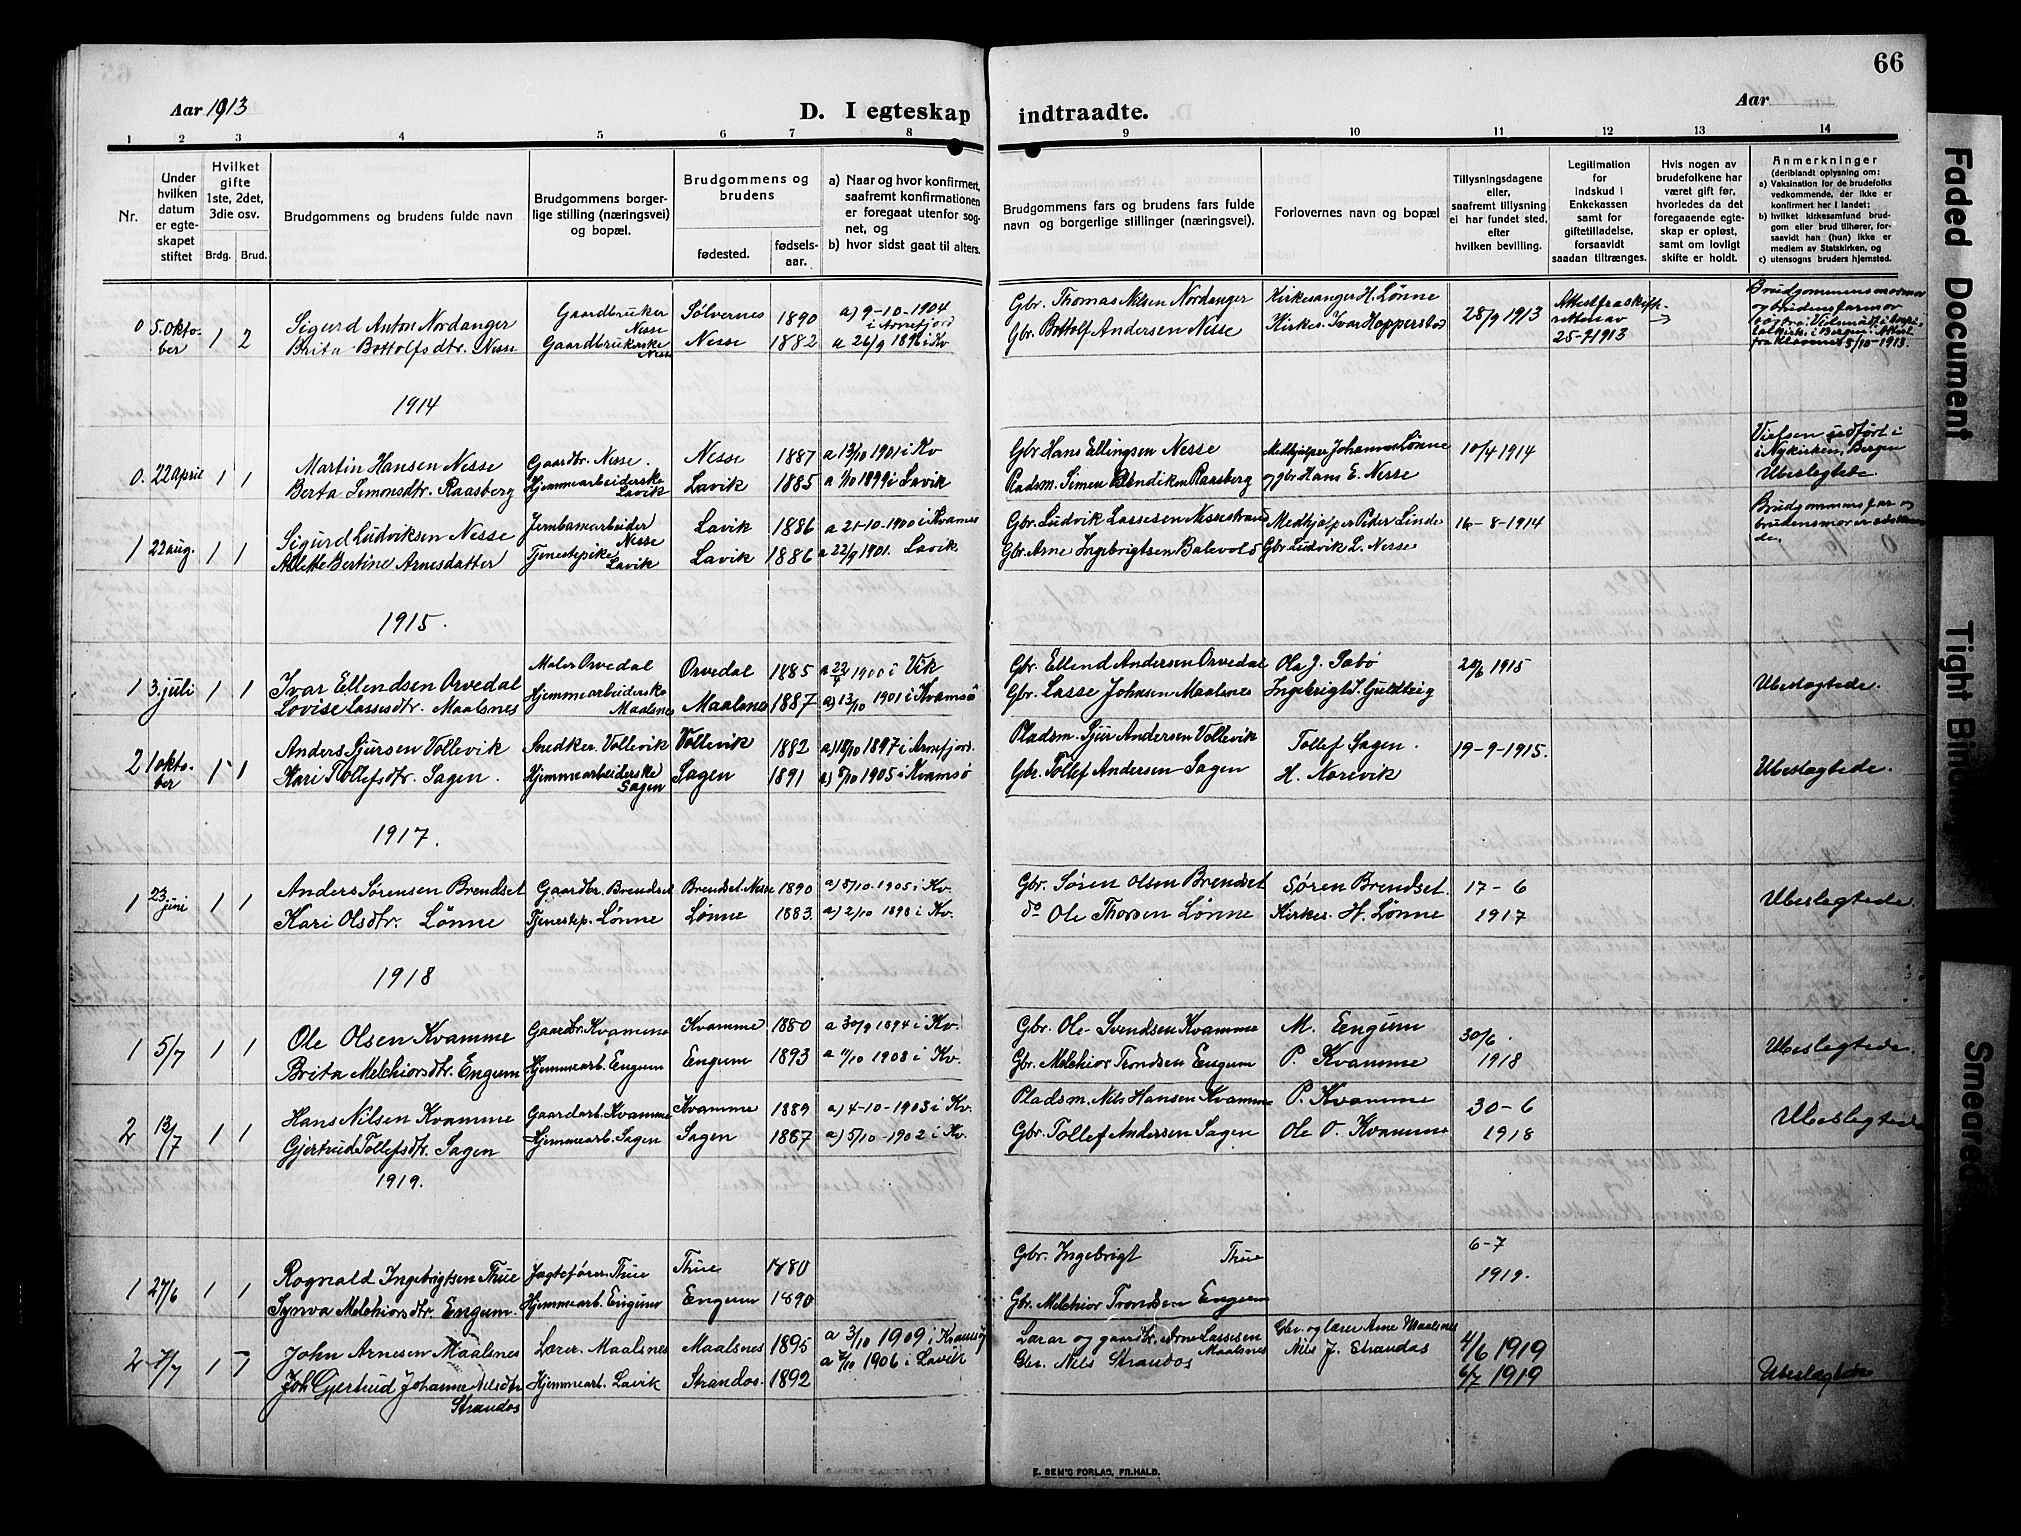 66
Aar 1913
D. I egteskap indtraadte.
Aar
1 2 3 4 5 6 7 8 9 10 11 12 13 14
Nr.
Under hvilken datum er egte-skapet stiftet
Hvilket gifte 1ste, 2det, 3die osv.
Brdg. Brud.
Brudgommens og brudens fulde navn
Brudgommens borger-lige stilling (næringsvei) og bopæl.
Brudgommens og brudens
fødested.
fødsels-aar.
a) Naar og hvor konfirmert, saafremt konfirmationen er foregaat utenfor sog-net, og
b) hvor sidst gaat til alters.
Brudgommens fars og brudens fars fulde navn og borgerlige stillinger (næringsvei).
Forlovernes navn og bopæl
Tillysningsdagene eller, saafremt tillysning ei har fundet sted, efter hvilken bevilling.
Legitimation for indskud i Enkekassen samt for giftetilladelse, forsaavidt saadan tiltrænges.
Hvis nogen av brudefolkene har været gift før, hvorledes da det foregaaende egte-skap er opløst, samt om lovligt skifte er holdt.
Anmerkninger (deriblandt oplysning om:
a) Vaksination for de brudefolks vedkommende, der ikke er konfirmert her i landet;
b) hvilket kirkesamfund brud-gom eller brud tilhører, for-saavidt han (hun) ikke er medlem av Statskirken, og
c) utensogns bruders hjemsted.
0 5. okto-ber 1 2 Sigurd Anton Nordanger Gaardbruker Nesse Sølvernes 1890 a) 9-10-1904 i Arnefjord Gbr. Thomas Nilsen Nordanger Kirkesanger H. Lønne 28/9 1913
Brita Bottolfsdtr. Nesse Gaardbrukerske Nesse Nesse 1882 a 26/9 1896 i Kv Gbr. Bottolf Andersen Nesse Kirkes. Ivar Hopperstad 25-7 1913
1914
0. 22 april 1 1 Martin Hansen Nesse Gaardbr. Nesse. Nesse 1887 a 13/10 1901 i Kv Gbr Hans Ellingsen Nesse Medhjælper Johannes Lønne 10/4 1914 Vielsen utført i Nykirken, Bergen
Berta Simonsdtr. Raasberg Hjemmearbeiderske Lavik Lavik 1885 a 1/10 1899 i Lavik Pladsm. Simen Bendiksen Raasberg og gbr Hans E. Nesse Ubeslegtede
1 22 aug. 1 1 Sigurd Ludviksen Nesse Jernbanearbeider Nesse Lavik 1886 a 21-10-1900 i Kvamsø Gbr. Ludvik Lassesen Nessestrand Medhjelper Peder Linde 16-8-1914 Brudgommens far og brudens mor er søskende.
Alette Bertine Arnesdatter Tjenestepike Lavik Lavik 1886 a 22/9 1901. Lavik Gbr. Arne Ingebrigtsen Balevold Gbr Ludvik L. Nesse
1915.
1 3. juli 1 1 Ivar Ellendsen Orvedal Maler Orvedal Orvedal 1885 1900 i Vik Gbr. Ellend Andersen Orvedal Ola J. Sabø 20/6 1915
Lovise Lassesdtr. Maalsnes Hjemmearbeiderske Maalsnes Maalsnes 1887 a) 13/10 1901 i Kvamsö Gbr. Lasse Johnsen Maalsnes Ubeslegtede.
2 1 okto-ber 1 1 Anders Sjursen Vollevik Snedker. Vollevik Vollevik 1882 a) 18/10 1897 i Arnefjord. Pladsm. Sjur Andersen Vollevik Tollef Sagen. 19-9-1915.
Kari Tollefsdtr. Sagen. Hjemmearbeiderske Sagen Sagen 1891 a) 8/10 1905 i Kvamsø Gbr. Tollef Andersen Sagen H. Norevik Ubeslegtede.
1917.
1 23 juni 1 1 Anders Sørensen Brendset Gaardbr. Brendset Brendset. Nesse 1890 a) 8/10-1905 i Kv. Gbr. Søren Olsen Brendset Søren Brendset. 17-6
Kari Olsdtr. Lønne Tjenestep. Lønne Lønne 1883. a) 2/10 1898 i Kv. do Ole Thorsen Lønne Kirkes. H. Lønne 1917 Ubeslegtede.
1918
1 5/7 1 1 Ole Olsen Kvamme Gaardbr. Kvamme Kvamme 1880 a 30/9 1894 i Kv. Gbr. Ole Svendsen Kvamme M. Engum 30/6.
Brita Melchiorsdtr. Engum Hjemmearb. Engum Engum 1893 a 4/10 1908 i Kv. Gbr. Melchior Trondsen Engum P. Kvamme 1918 Ubeslegtede.
2 13/7 1 1 Hans Nilsen Kvamme Gaardarb. Kvamme Kvamme 1889 a) 4-10-1903 i Kv. Pladsm. Nils Hansen Kvamme P. Kvamme 30-6
Gjertrud Tollefsdtr. Sagen Hjemmearb. Sagen Sagen 1887 a) 5/10-1902 i Kv. Gbr. Tollef Andersen Sagen Ole O. Kvamme 1918 Ubeslegtede
1919.
1 27/6 1 1 Rognald Ingebrigtsen Thue Jagtefører Thue Thue 1880 Gbr. Ingebrigt Thue 6-7
Synva Melchiorsdtr. Engum. Hjemmearb. Engum Engum 1890 Gbr. Melchior Trondsen Engum 1919.
2 7/7 1 1 John Arnesen Maalsnes Lærer. Maalsnes Maalsnes 1895 a 3/10 1909 i Kvamsø Lærar og gaardbr. Arne Lassesen Maalsnes Gbr. og lærer Arne Maalsnes 4/6 1919
Gjertrud Johanne Nilsdtr Strandos Hjemmearb. Lavik Strandos. 1892 a 7/10 1906 i Lavik Gbr. Nils Strandos Nils J. Strandos 6/7 1919 Ubeslegtede
E. SEM'S FORLAG, FR.HALD.
Faded Document
Tight Binding
Smeared